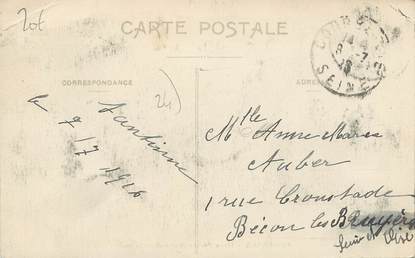 20f
CARTE POSTALE
CORRESPONDANCE
ADRE
SEINE
24
le 7/7 1916
Mlle Anne Marie
Auber
1 rue Cronstadt
Bécon les Bruyère
Seine et Oise